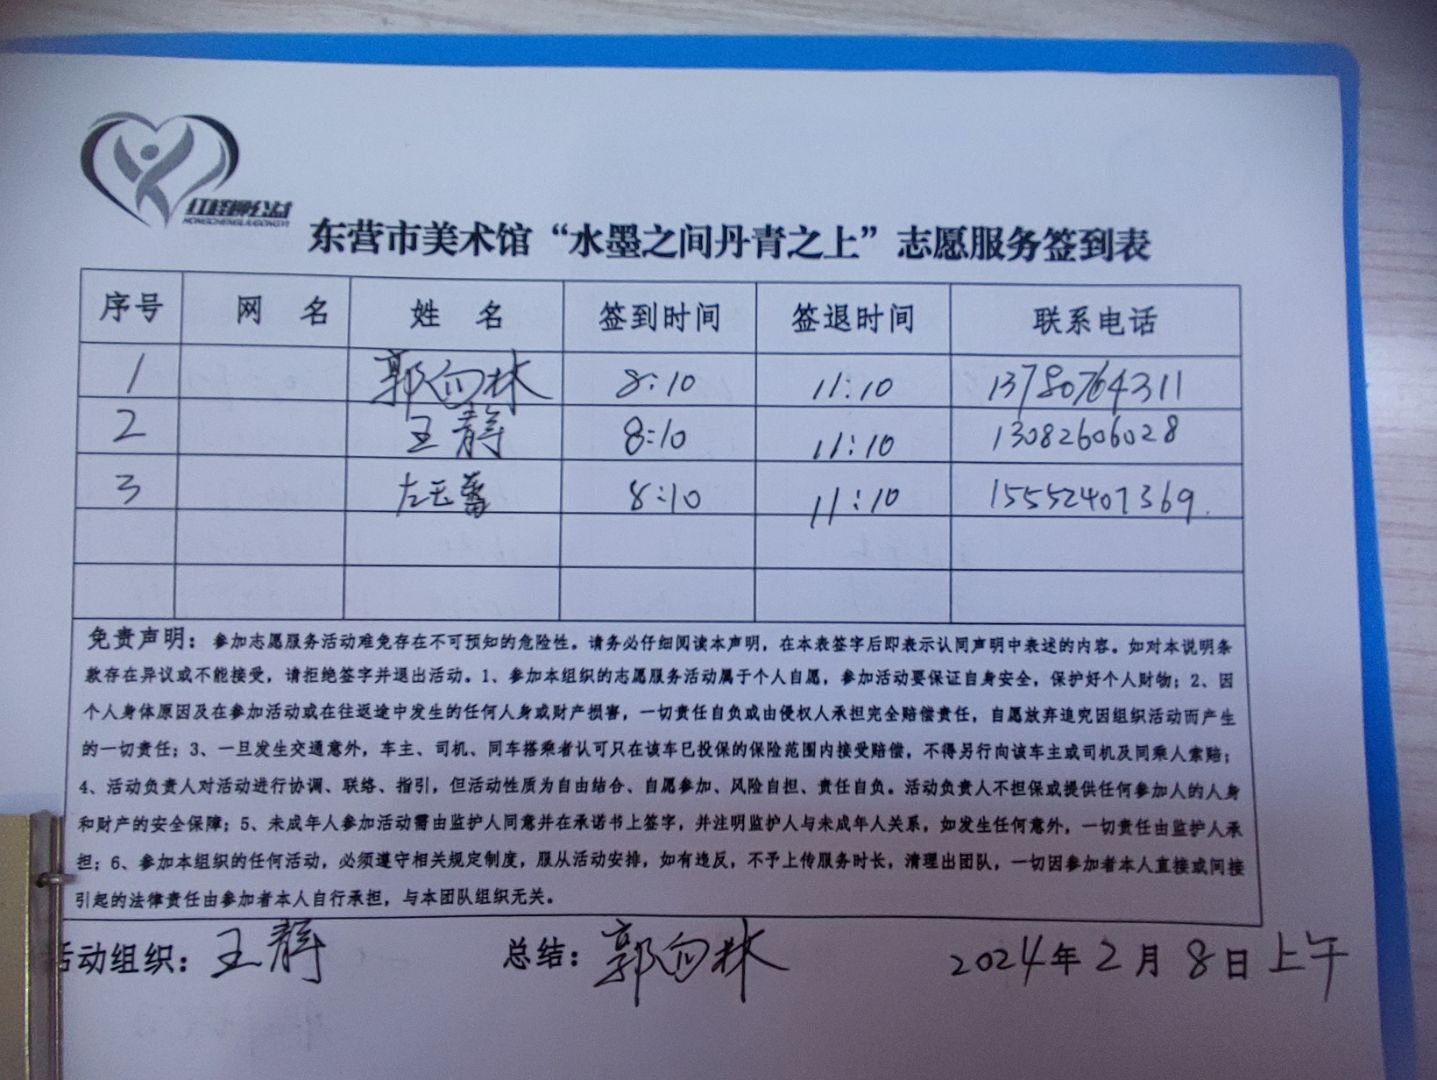 红柽柳公益
HONGCHENGLIUGONGYI
东营市美术馆“水墨之间丹青之上”志愿服务签到表
序号 网 名 姓 名 签到时间 签退时间 联系电话
1 郭向林 8:10 11:10 13780764311
2 王静 8:10 11:10 13082606028
3 左玉蕃 8:10 11:10 15552407369
免责声明：参加志愿服务活动难免存在不可预知的危险性。请务必仔细阅读本声明，在本表签字后即表示认同声明中表述的内容。如对本说明条
款存在异议或不能接受，请拒绝签字并退出活动。1、参加本组织的志愿服务活动属于个人自愿，参加活动要保证自身安全，保护好个人财物；2、因
个人身体原因及在参加活动或在往返途中发生的任何人身或财产损害，一切责任自负或由侵权人承担完全赔偿责任，自愿放弃追究因组织活动而产生
的一切责任；3、一旦发生交通意外，车主、司机、同车搭乘者认可只在该车已投保的保险范围内接受赔偿，不得另行向该车主或司机及同乘人索赔；
4、活动负责人对活动进行协调、联络、指引，但活动性质为自由结合、自愿参加、风险自担、责任自负。活动负责人不担保或提供任何参加人的人身
和财产的安全保障；5、未成年人参加活动需由监护人同意并在承诺书上签字，并注明监护人与未成年人关系，如发生任何意外，一切责任由监护人承
担；6、参加本组织的任何活动，必须遵守相关规定制度，服从活动安排，如有违反，不予上传服务时长，清理出团队，一切因参加者本人直接或间接
引起的法律责任由参加者本人自行承担，与本团队组织无关。
活动组织：王静 总结：郭向林 2024年2月8日上午